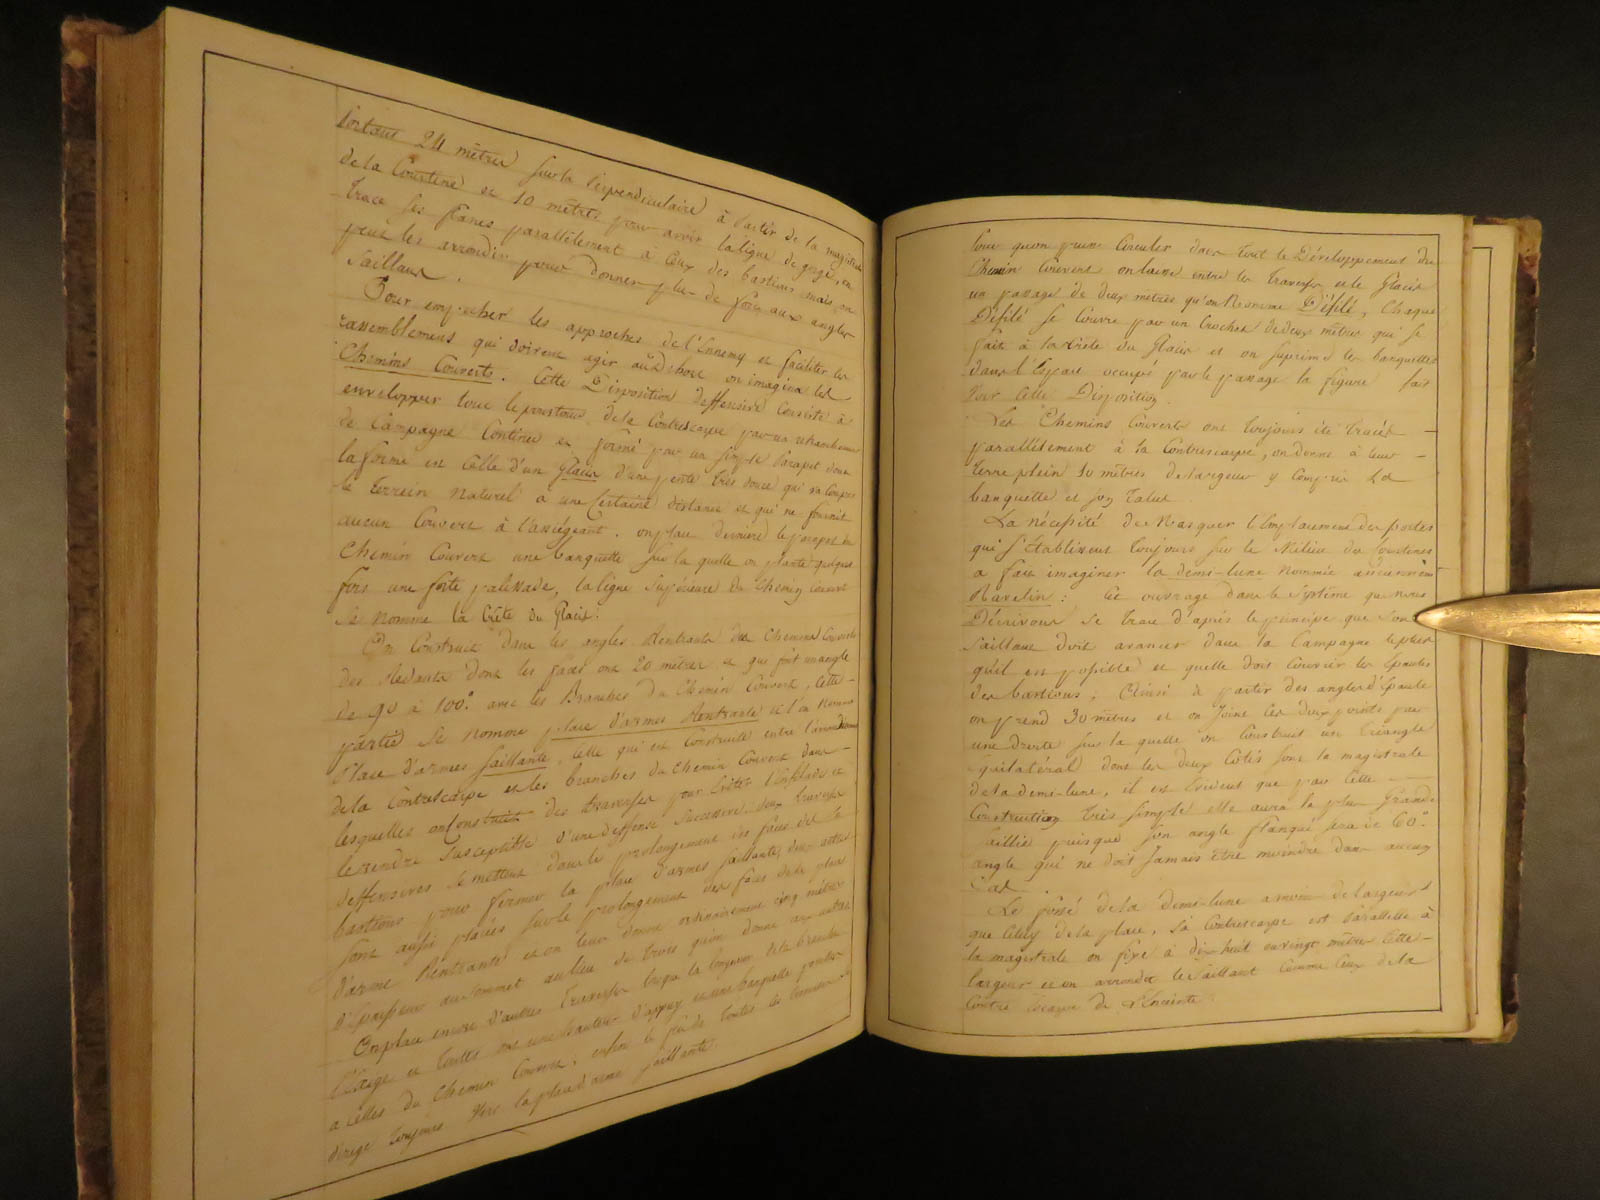 portant 24 mètres sur la perpendiculaire à partir de la magistrale
de la Courtine et 10 mètres pour avoir la ligne de gorge, on
trace ses flancs parallèlement à Ceux des bastions mais on
peut les arrondir pour donner plus de force aux angles
Saillans.
Pour empecher les approches de l'Ennemy et faciliter les
rassemblemens qui doivent agir au Dehors on imagina les
Chemins Couverts. Cette Disposition deffensive Consiste à
envelopper tout le pourtour de la Contrescarpe par un retranchement
de Campagne Continu et formé par un simple Parapet dont
la forme est Celle d'un Glacis d'une pente très douce qui va Couper
le Terrein Naturel à une Certaine distance et qui ne fournit
aucun Couvert à l'assiégeant. on place derrière le parapet du
Chemin Couvert une banquette sur la quelle on plante quelque
fois une forte palissade, la ligne Supérieure du Chemin Couvert
Se nomme la Crête du Glacis.
On Construit dans les angles Rentrants des Chemins Couverts
des Redants dont les faces ont 20 mètres et qui font un angle
de 90 à 100.° avec les Branches du Chemin Couvert, Cette
partie Se nomme place d'armes Rentrante et l'on nomme
Place d'armes Saillante, Celle qui est Construite entre l'arrondissement
de la Contrescarpe et les branches du Chemin Couvert dans
lesquelles on Construit des traverses pour Eviter l'Enfilade et
le rendre Susceptible d'une deffense Successive. deux traverses
deffensives se mettent dans le prolongement des faces des
bastions pour fermer la place d'armes Saillante, deux autres
Sont aussi placées sur le prolongement des faces de la place
d'arme Rentrante et on leur donne ordinairement cinq mètres
d'Epaisseur au Sommet au lieu de trois qu'on donne aux autres
On place encore d'autres Traverses lorsque la longueur de la branche
l'Exige et toutes ont une hauteur d'appuy et une banquette pareilles
a Celles du Chemin Couvert; enfin le feu de toutes les traverses se
dirige toujours vers la place d'arme Saillante.
Pour qu'on puisse Circuler dans tout le Développement du
Chemin Couvert on laisse entre les Traverses et le Glacis
un passage de deux mètres qu'on Nomme Défilé, Chaque
Défilé se Couvre par un Crochet de deux mètres qui se
fait à la Crête du Glacis et on suprime les banquettes
dans l'Espace occupé par le passage la figure fait
Voir Cette Disposition.
Les Chemins Couverts ont toujours été tracés
parallèlement à la Contrescarpe, on donne à leur
terre plein 10 mètres de largeur y Compris la
banquette et son talus.
La nécessité de Masquer l'Emplacement des portes
qui s'établissent toujours sur le Milieu des Courtines
a fait imaginer la demi-lune nommée anciennement
Ravelin: Ce ouvrage dans le Système que nous
Décrivons se trace d'après le principe que Son
Saillant doit avancer dans la Campagne le plus
qu'il est possible et quelle doit Couvrir les Epaules
des bastions. Ainsi à partir des angles d'Epaule
on prend 30 mètres et on joint Ces deux points par
une droite sur la quelle on Construit un triangle
Equilatéral dont les deux Côtés sont la magistrale
de la demi-lune, il est Evident que par Cette
Construction très simple elle aura la plus Grande
Saillie puisque Son angle flanqué sera de 60.°
angle qui ne doit Jamais être moindre dans aucun
Cas.
Le fossé de la demi-lune a moins de largeur
que Celuy de la place, sa Contrescarpe est parallelle à
la magistrale on fixe à dix huit ou vingt mètres Cette
largeur et on arrondit le Saillant Comme Ceux de la
Contre Escarpe de l'Enceinte.